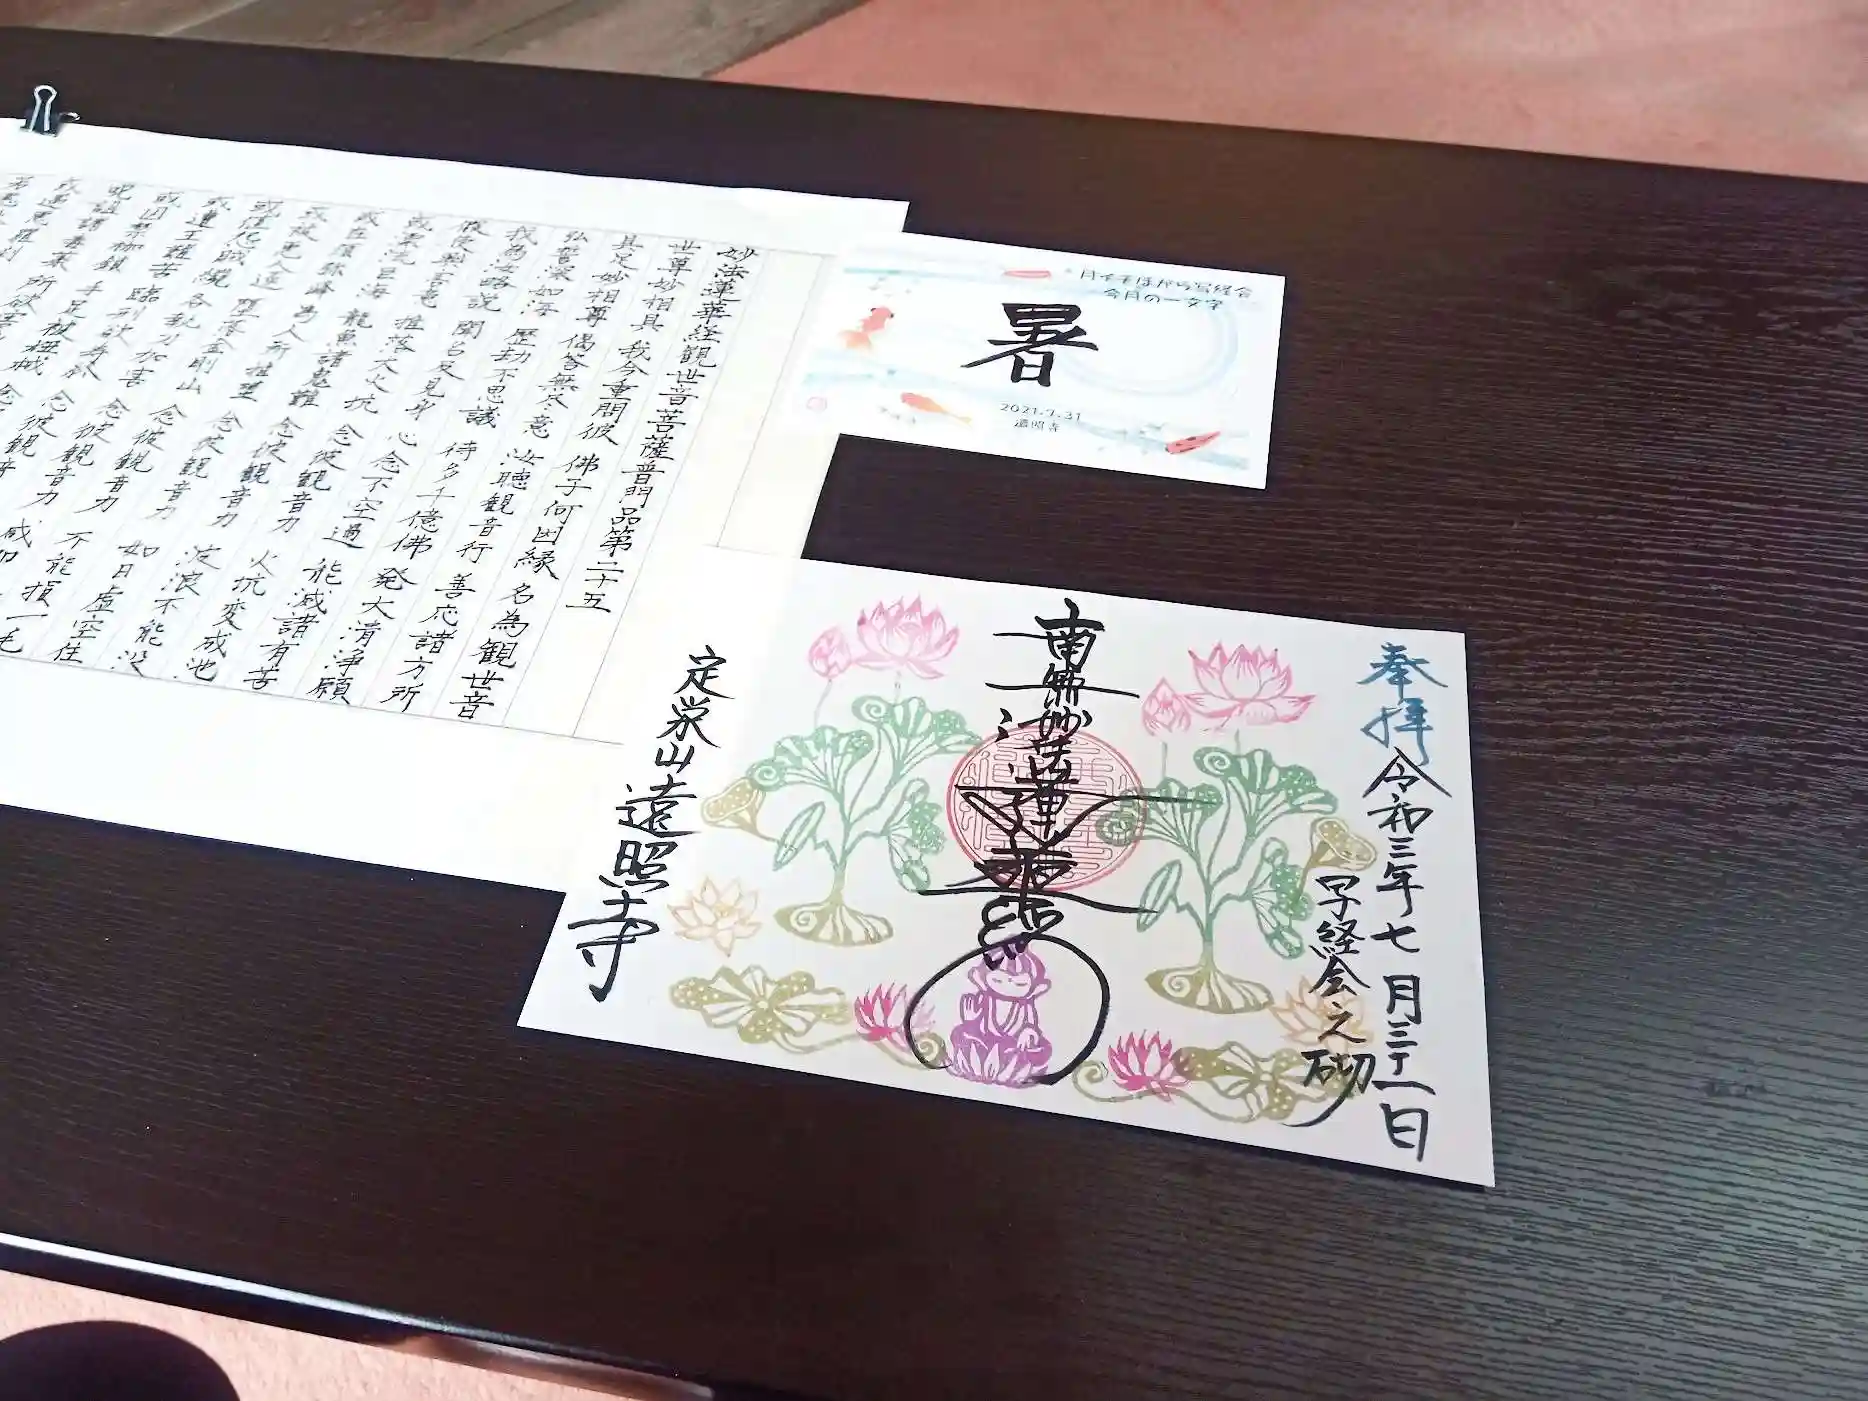 妙法蓮華経観世音菩薩普門品第二十五
世尊妙相具 我今重問彼 佛子何因縁 名為観世音
具足妙相尊 偈答無尽意 汝聴観音行 善応諸方所
弘誓深如海 歴劫不思議 侍多千億佛 発大清浄願
我為汝略説 聞名及見身 心念不空過 能滅諸有苦
假使興害意 推落大火坑 念彼観音力 火坑変成池
或漂流巨海 龍魚諸鬼難 念彼観音力 波浪不能没
或在須弥峰 為人所推堕 念彼観音力 如日虚空住
或被悪人逐 堕落金剛山 念彼観音力 不能損一毛
或値怨賊繞 各執刀加害 念彼観音力 咸即
或遭王難苦 臨刑欲寿終 念彼観音力
或囚禁枷鎖 手足被杻械 念彼観音力
呪詛諸毒薬 所欲害
或遇悪羅刹
月イチほがら写経会
今月の一文字
暑
2021.7.31
遠照寺
奉拝
令和三年七月三十一日
写経会之砌
南無妙法蓮華経
定栄山遠照寺